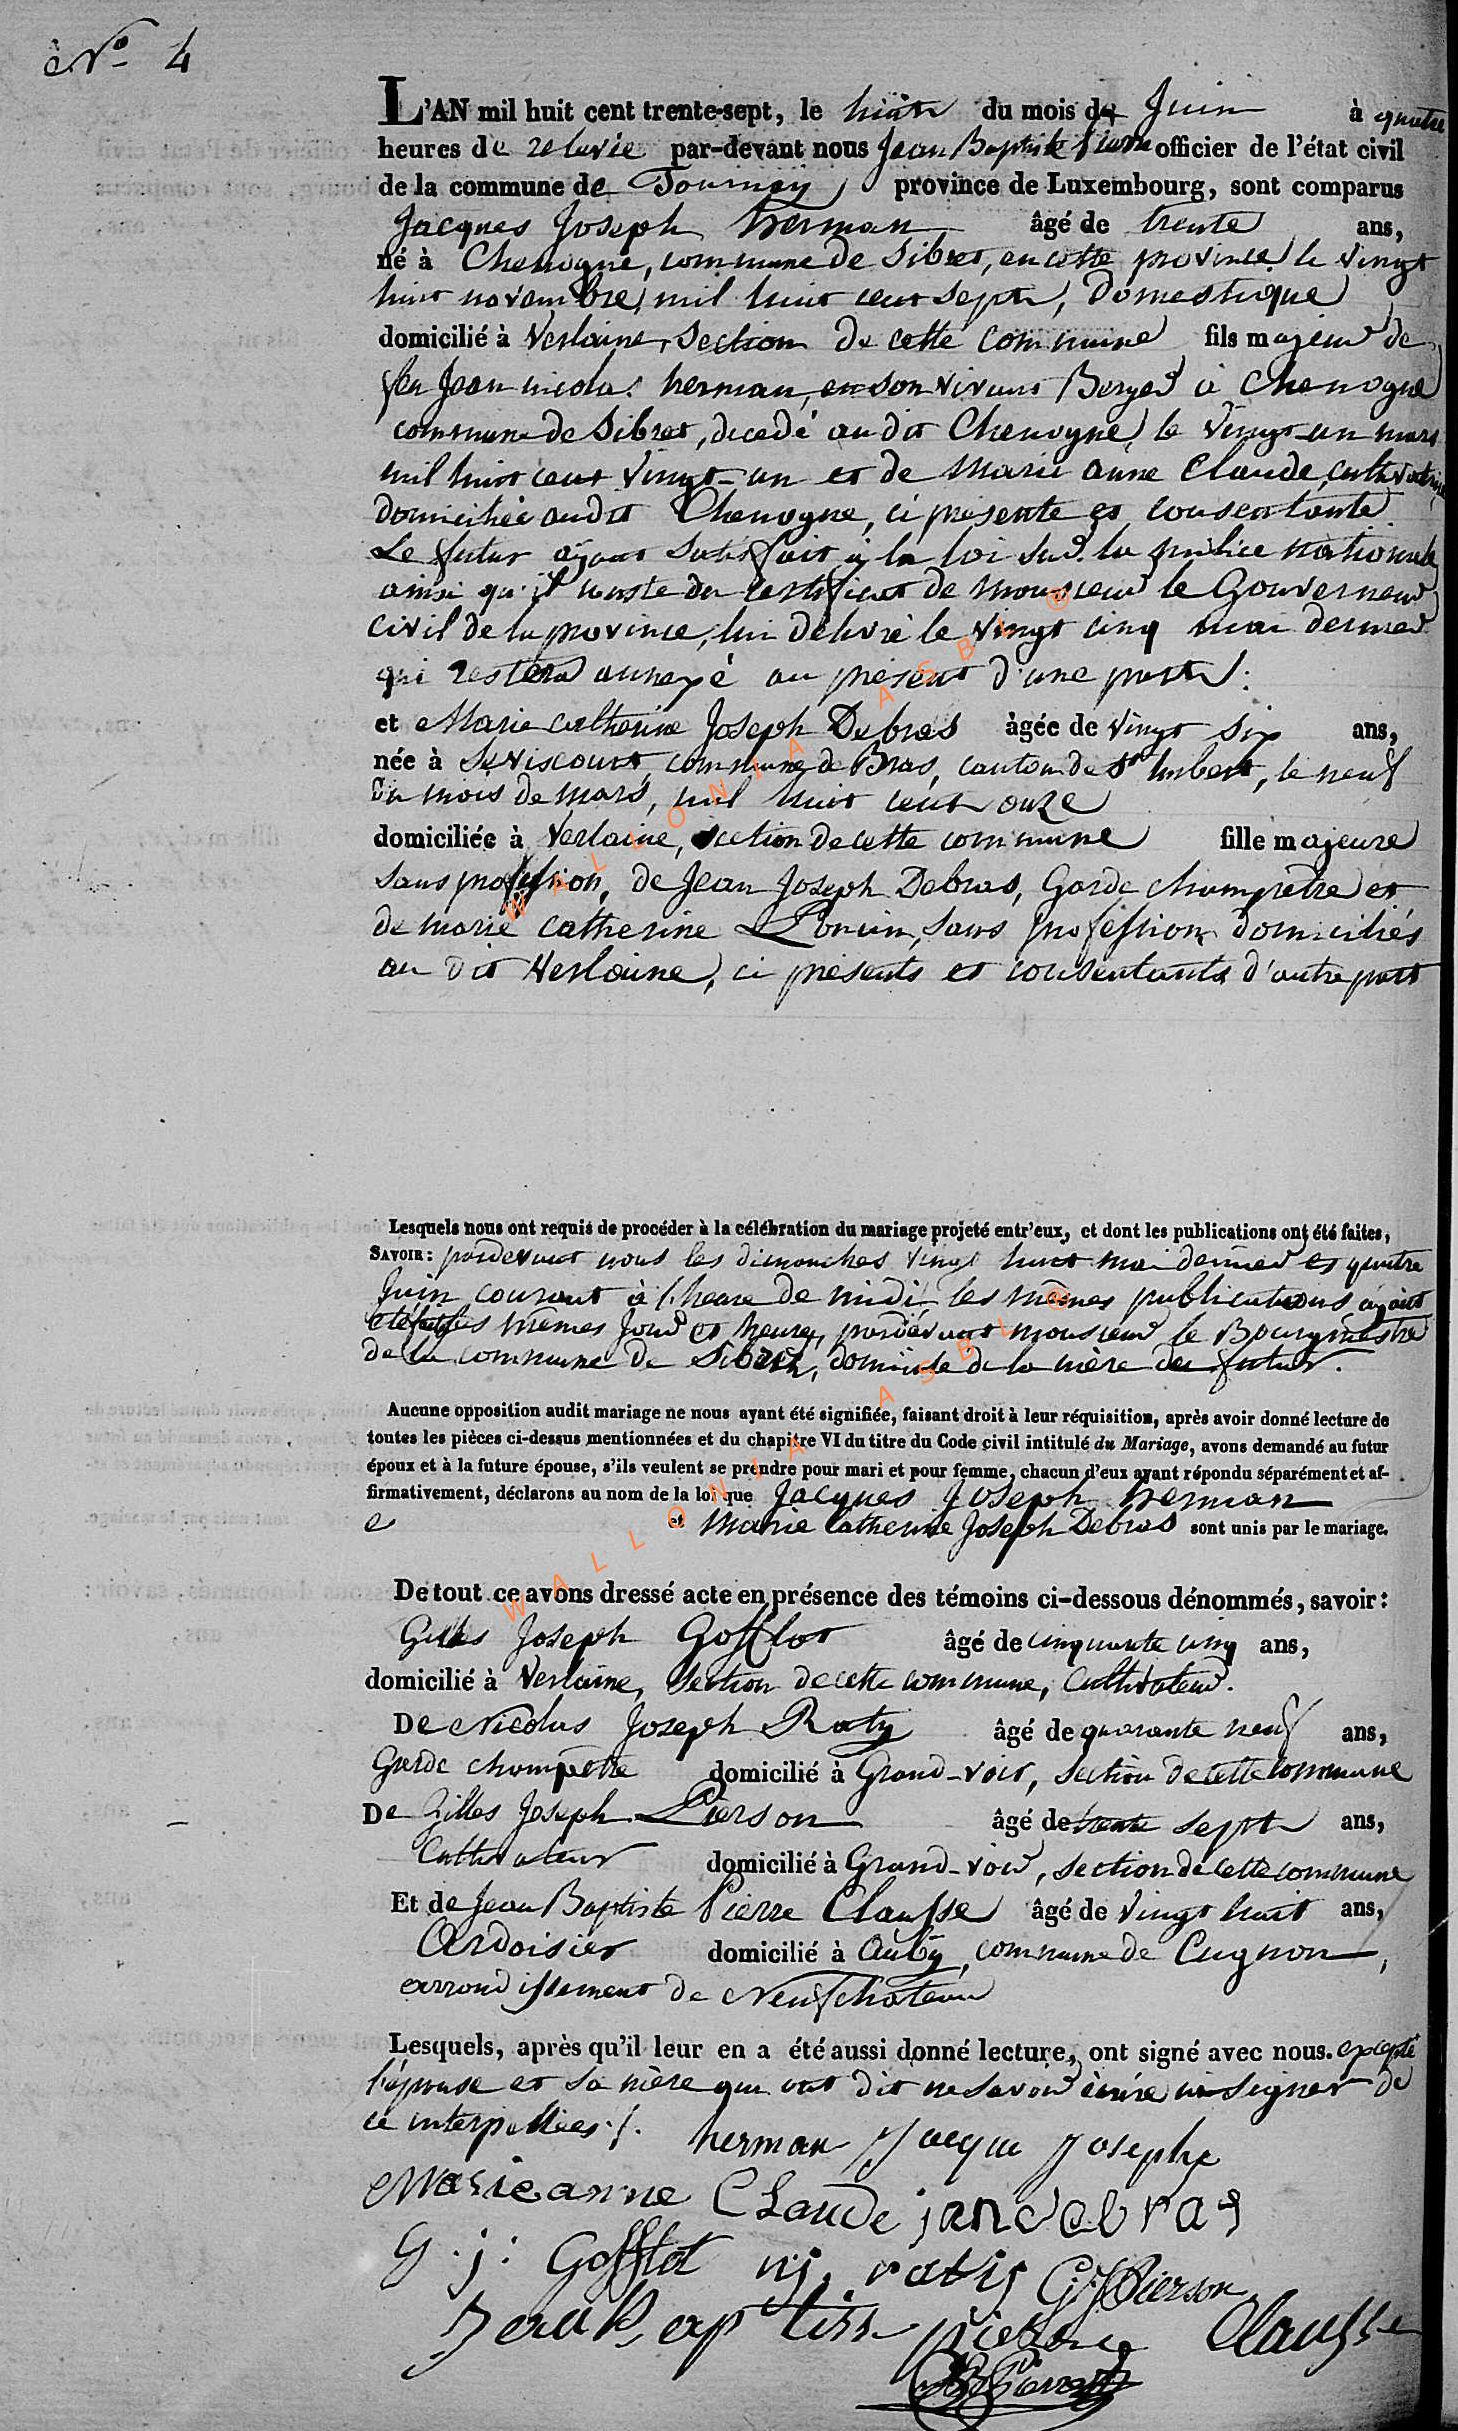 N° 4
L'AN mil huit cent trente-sept, le huit du mois de Juin à quatre
heures de relevée par-devant nous Jean Baptiste officier de l'état civil
de la commune de Tournay, province de Luxembourg, sont comparus
Jacques Joseph herman âgé de trente ans,
né à Chenogne, commune de Sibret, en cette province, le vingt
huit novembre, mil huit cent sept, domestique
domicilié à Verlaine, section de cette commune fils majeur de
feu Jean nicolas herman, en son vivant Berger à Chenogne
commune de Sibret, décedé au dit Chenogne, le vingt-un mars
mil huit cent vingt-un et de Marie anne Claude, cultivatrice
domiciliée audit Chenogne, ci présente et consentante
Le futur ayant satisfait à la loi sur la milice nationale
ainsi qu'il conste du certificat de monsieur le Gouverneur
civil de la province, lui délivré le vingt cinq mai dernier
qui restera annexé au présent d'une part.
et Marie catherine Joseph Debras âgée de vingt six ans,
née à Seviscourt, commune de Bras, canton de St hubert, le neuf
du mois de mars, mil huit cent onze
domiciliée à Verlaine, section de cette commune fille majeure
sans profession, de Jean Joseph Debras, Garde champêtre et
de marie catherine sans profession domiciliés
au dit Verlaine, ci présents et consentants d'autre part
Lesquels nous ont requis de procéder à la célébration du mariage projeté entr'eux, et dont les publications ont été faites,
SAVOIR : pardevant nous les dimanches vingt huit mai dernier et quatre
Juin courant à l'heure de midi, les mêmes publications ayant
été faites mêmes jour et heure, pardevant monsieur le Bourgmestre
de la commune de Sibret, domicile de la mère du futur.
Aucune opposition audit mariage ne nous ayant été signifiée, faisant droit à leur réquisition, après avoir donné lecture de
toutes les pièces ci-dessus mentionnées et du chapitre VI du titre du Code civil intitulé du Mariage, avons demandé au futur
époux et à la future épouse, s'ils veulent se prendre pour mari et pour femme, chacun d'eux ayant répondu séparément et af-
firmativement, déclarons au nom de la loi que Jacques Joseph herman
et Marie Catherine Joseph Debras sont unis par le mariage.
De tout ce avons dressé acte en présence des témoins ci-dessous dénommés, savoir :
Gilles Joseph Gofflot âgé de cinquante cinq ans,
domicilié à Verlaine, section de cette commune, Cultivateur.
De Nicolas Joseph Roty âgé de quarante neuf ans,
Garde champêtre domicilié à Grand-voir, section de cette commune
De Gilles Joseph Pierson âgé de trente sept ans,
Cultivateur domicilié à Grand-voir, section de cette commune
Et de Jean Baptiste Pierre Clausse âgé de vingt huit ans,
Ardoisier domicilié à Auby, commune de Cugnon,
arrondissement de Neufchateau
Lesquels, après qu'il leur en a été aussi donné lecture, ont signé avec nous. excepté
l'épouse et sa mère qui ont dit ne savoir écrire ni signer de
ce interpellées.
herman Jacque Josephe
Marie anne Claude jan debras
G. j. Gofflot n.j. G.J. Pierson
Jean Baptiste pierre Clausse
WALLONIA ASBL ®
WALLONIA ASBL ®